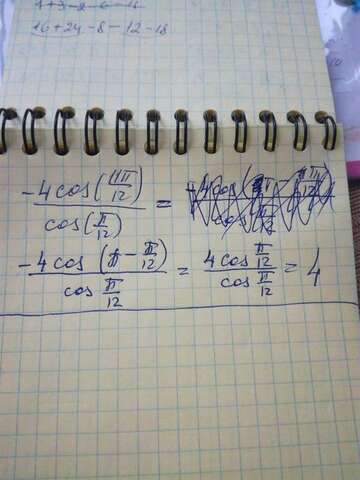 16+24-8-12-18
-4cos(11π/12) / cos(π/12) =
-4cos(π - π/12) / cos π/12 = 4cos π/12 / cos π/12 = 4